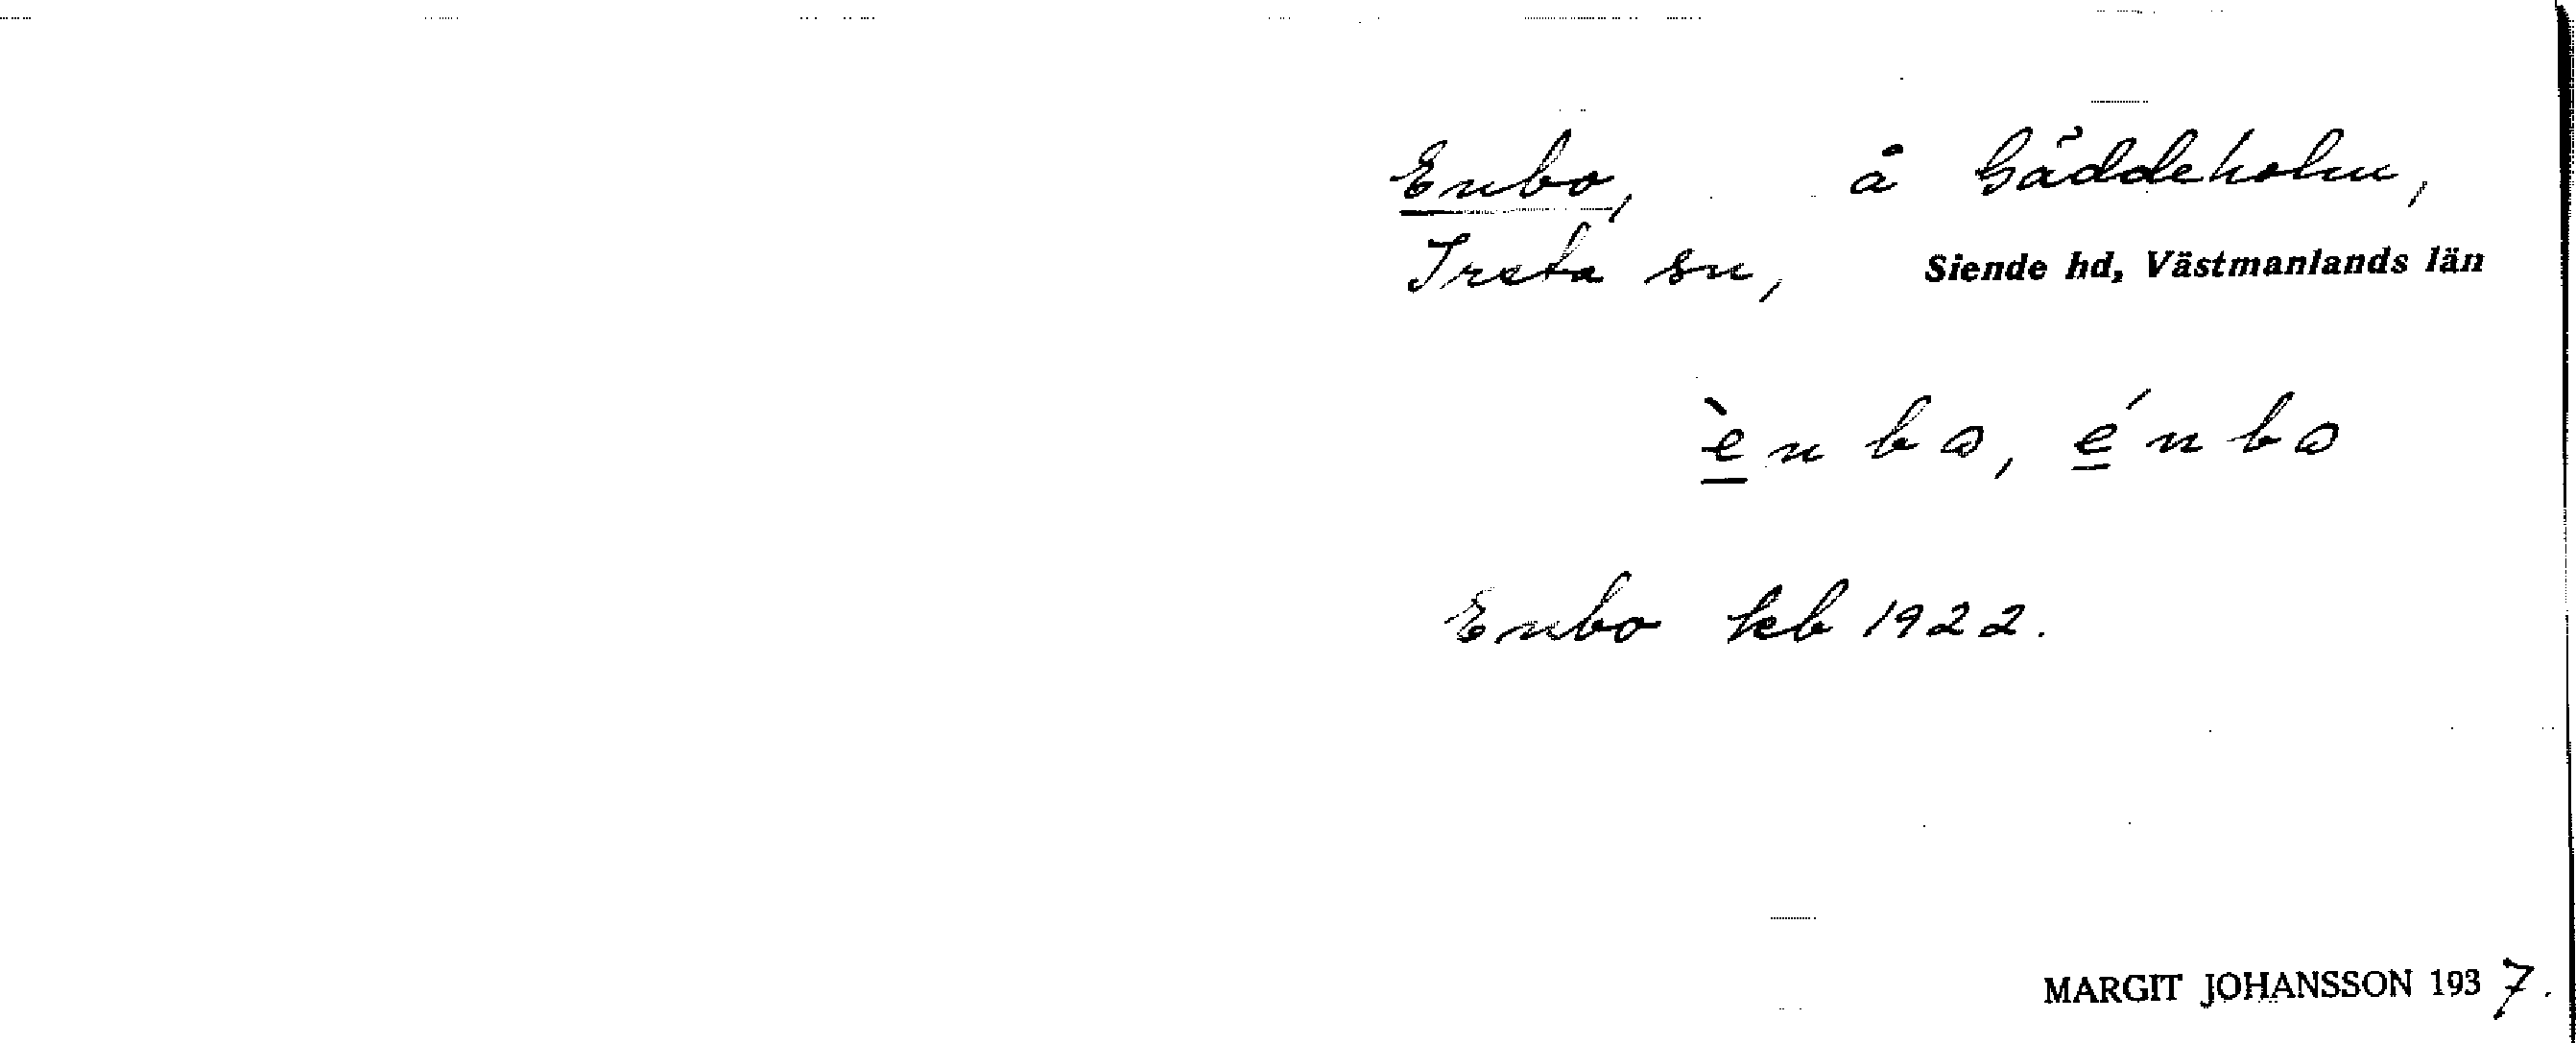 Enbo, å Gäddeholm,
Irsta sn, Siende hd, Västmanlands län
è̲nbɷ, é̲nbɷ
Enbo kb 1922.
MARGIT JOHANSSON 1937.